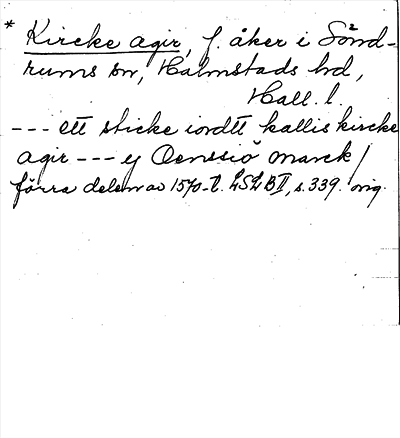 * Kircke agir, f. åker i Sönd-
rums sn, Halmstads hd,
Hall. l.
--- ett sticke iordtt kallis kircke
agir --- ij Oenssiö marck /
förra delen av 1570-t. LSLBII, s. 339. orig.